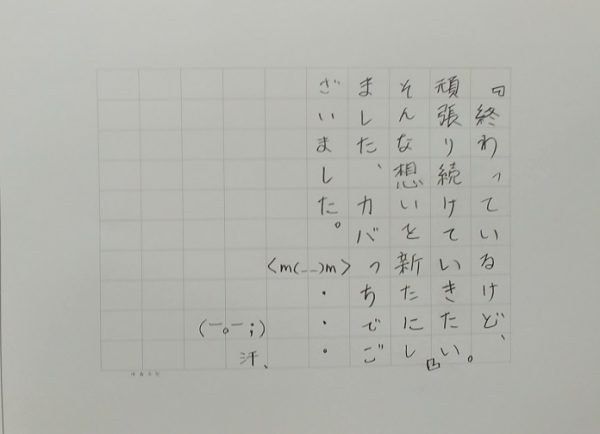 『終わっているけど、
頑張り続けていきたい。』
そんな想いを新たにし
ました、カバっちでご
ざいました。
<m(__)m>
・・・
(ー。ー;)
汗、